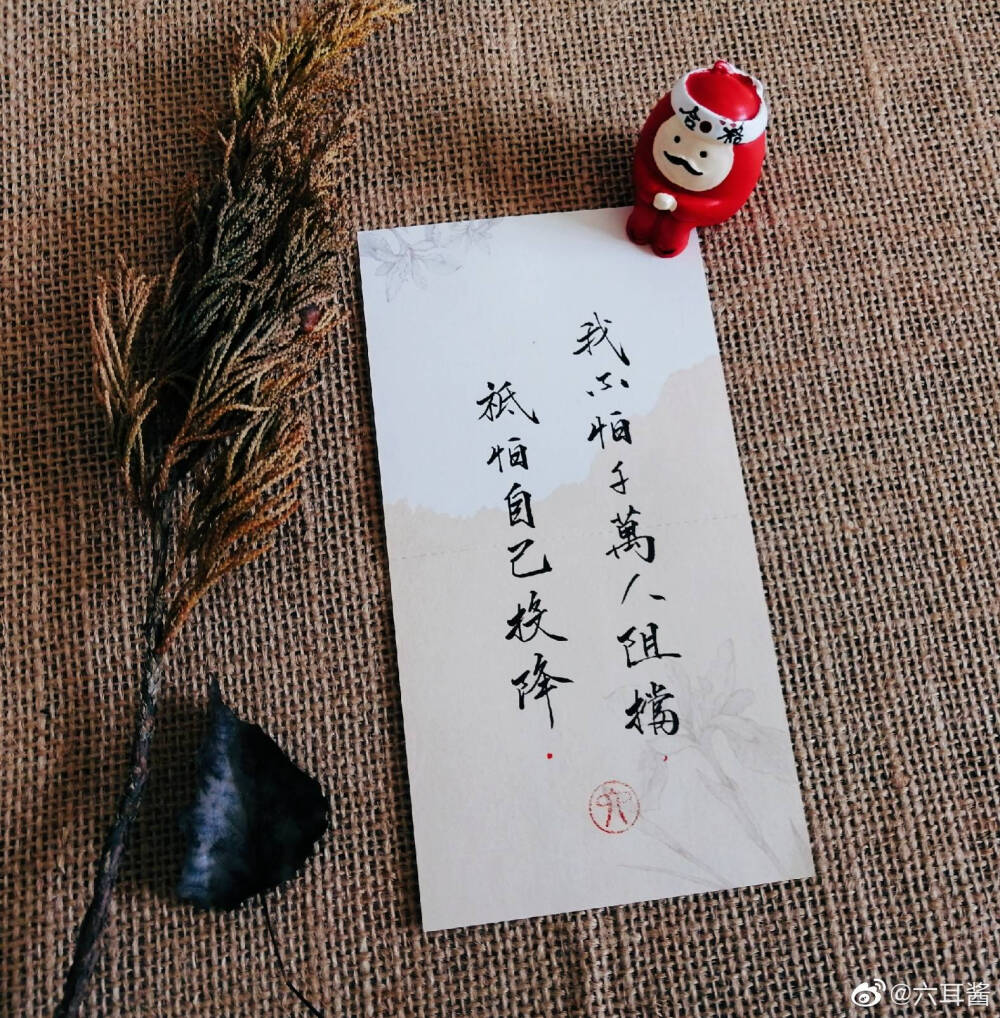 我不怕千萬人阻擋，
祗怕自己投降.
合格
六
@六耳酱